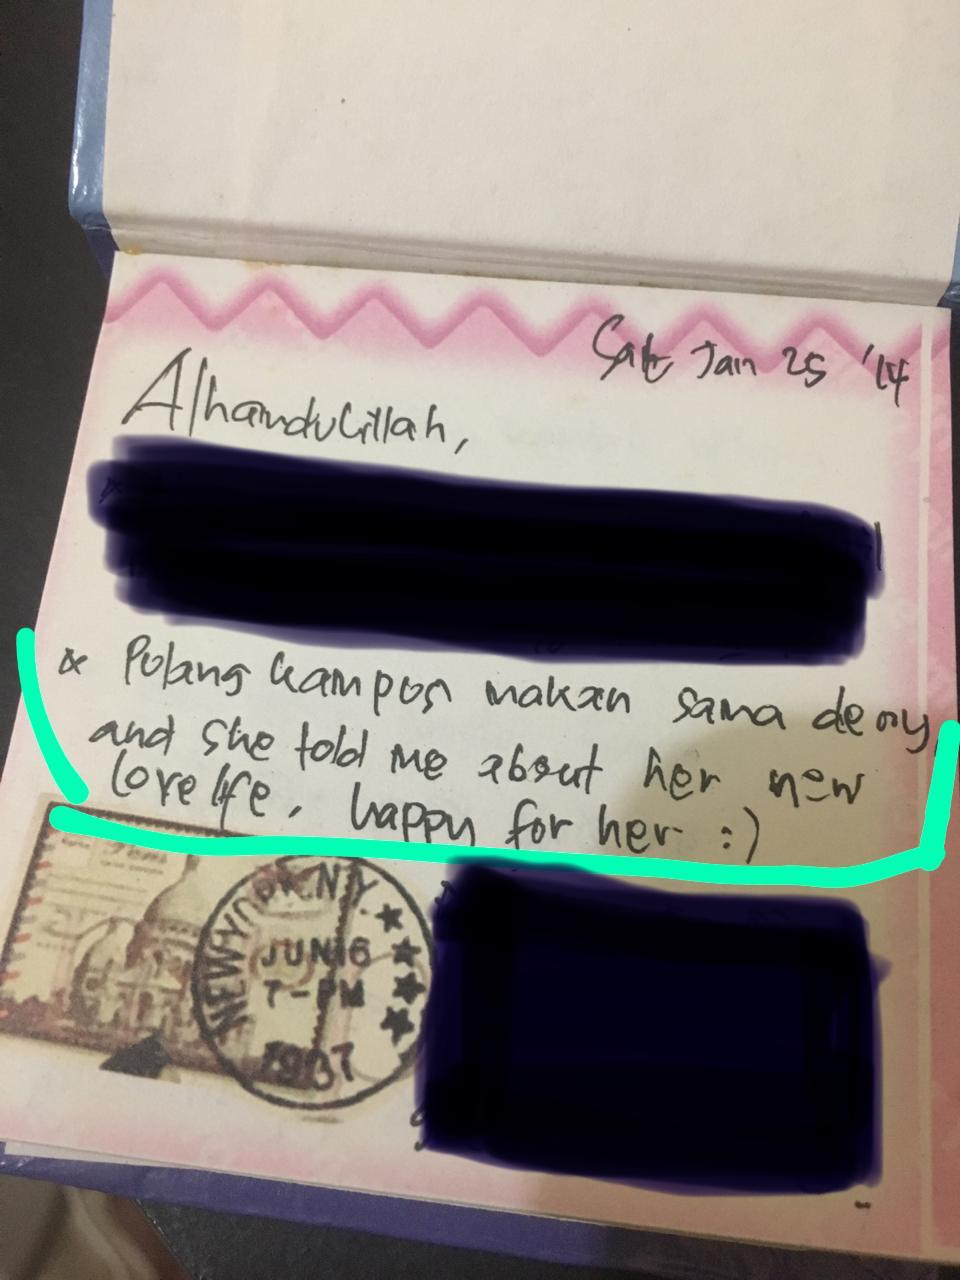 Sat Jan 25 '14
Alhamdulillah,
* Pulang kampus makan sama deasy,
and she told me about her new
lovelife. happy for her :)
NEW YORK, N.Y.
JUN 16
7-PM
1937